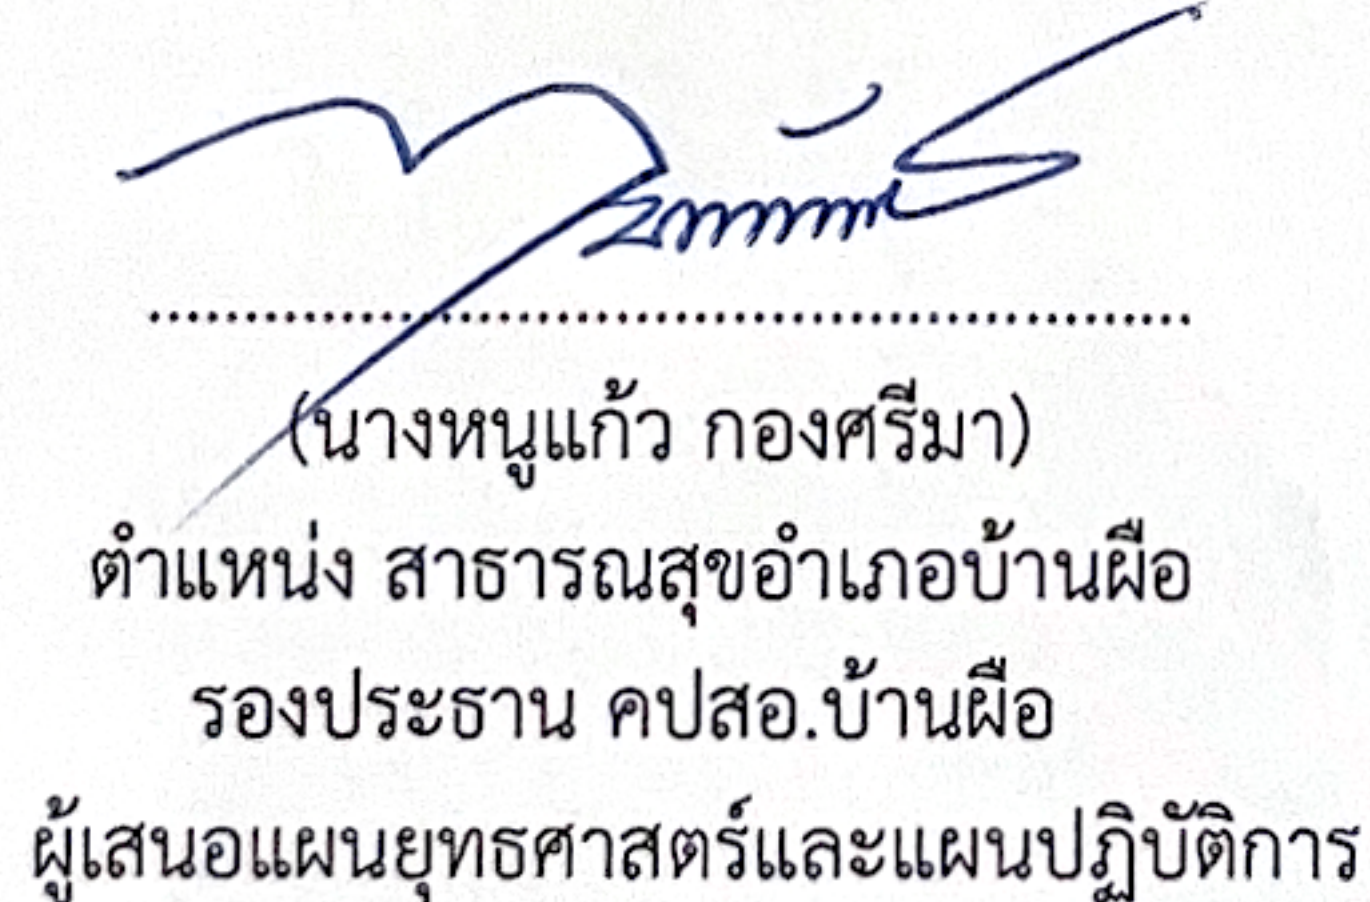 (นางหนูแก้ว กองศรีมา)
ตำแหน่ง สาธารณสุขอำเภอบ้านผือ
รองประธาน คปสอ.บ้านผือ
ผู้เสนอแผนยุทธศาสตร์และแผนปฏิบัติการ